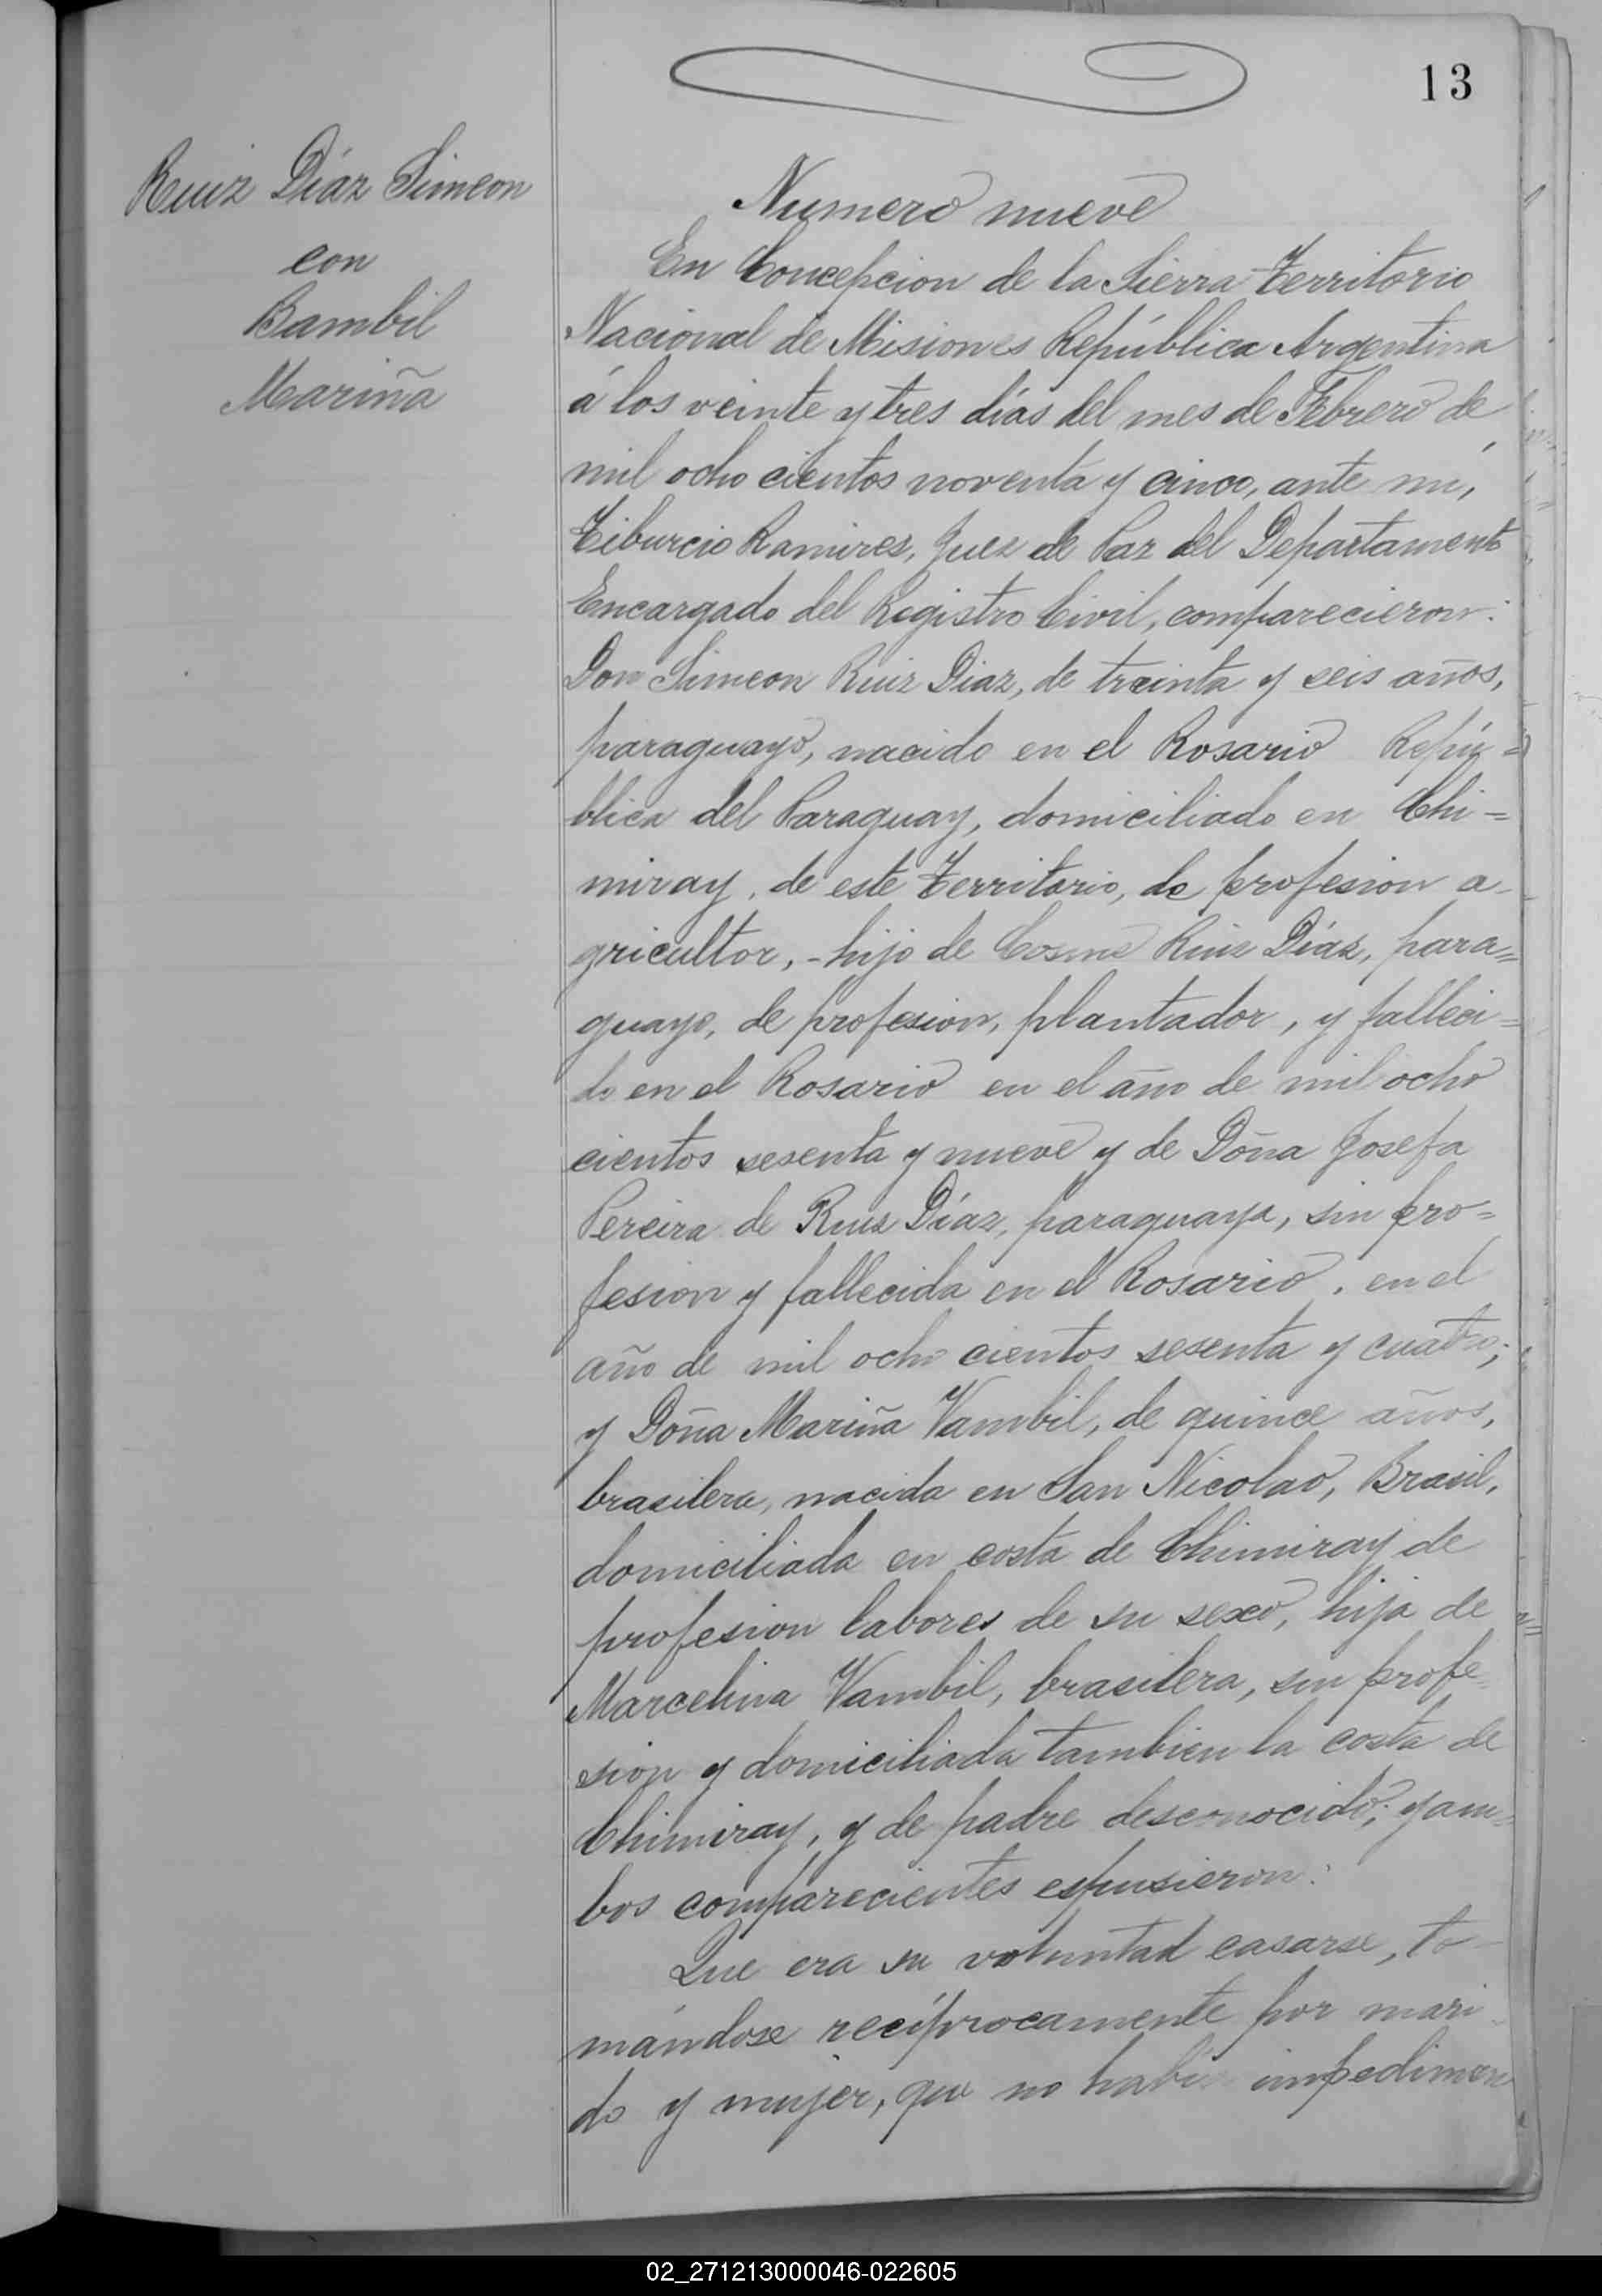 13
Ruiz Díaz Simeon
con
Bambil
Mariña
Numero nueve
En Concepcion de la Sierra Territorio
Nacional de Misiones República Argentina
á los veinte y tres días del mes de Febrero de
mil ocho cientos noventa y cinco, ante mí,
Tiburcio Ramires, Juez de Paz del Departamento
Encargado del Registro Civil, comparecieron:
Don Simeon Ruiz Diaz, de treinta y seis años,
paraguayo, nacido en el Rosario Repú=
blica del Paraguay, domiciliado en Chi=
miray, de este Territorio, de profesion a-
gricultor, - hijo de Cosme Ruiz Díaz, para=
guayo, de profesion, plantador, y falleci=
do en el Rosario en el año de mil ocho
cientos sesenta y nueve y de Doña Josefa
Pereira de Ruiz Díaz, paraguaya, sin pro=
fesion y fallecida en el Rosario, en el
año de mil ocho cientos sesenta y cuatro;
y Doña Mariña Vambil, de quince años,
brasilera, nacida en San Nicolao, Brasil,
domiciliada en costa de Chimiray de
profesion labores de su sexo, hija de
Marcelina Vambil, brasilera, sin profe=
sion y domiciliada tambien la costa de
Chimiray, y de padre desconocido; y am=
bos comparecientes espusieron:
Que era su voluntad casarse, to-
mándose recíprocamente por mari-
do y mujer, que no había impedimen
02_271213000046-022605